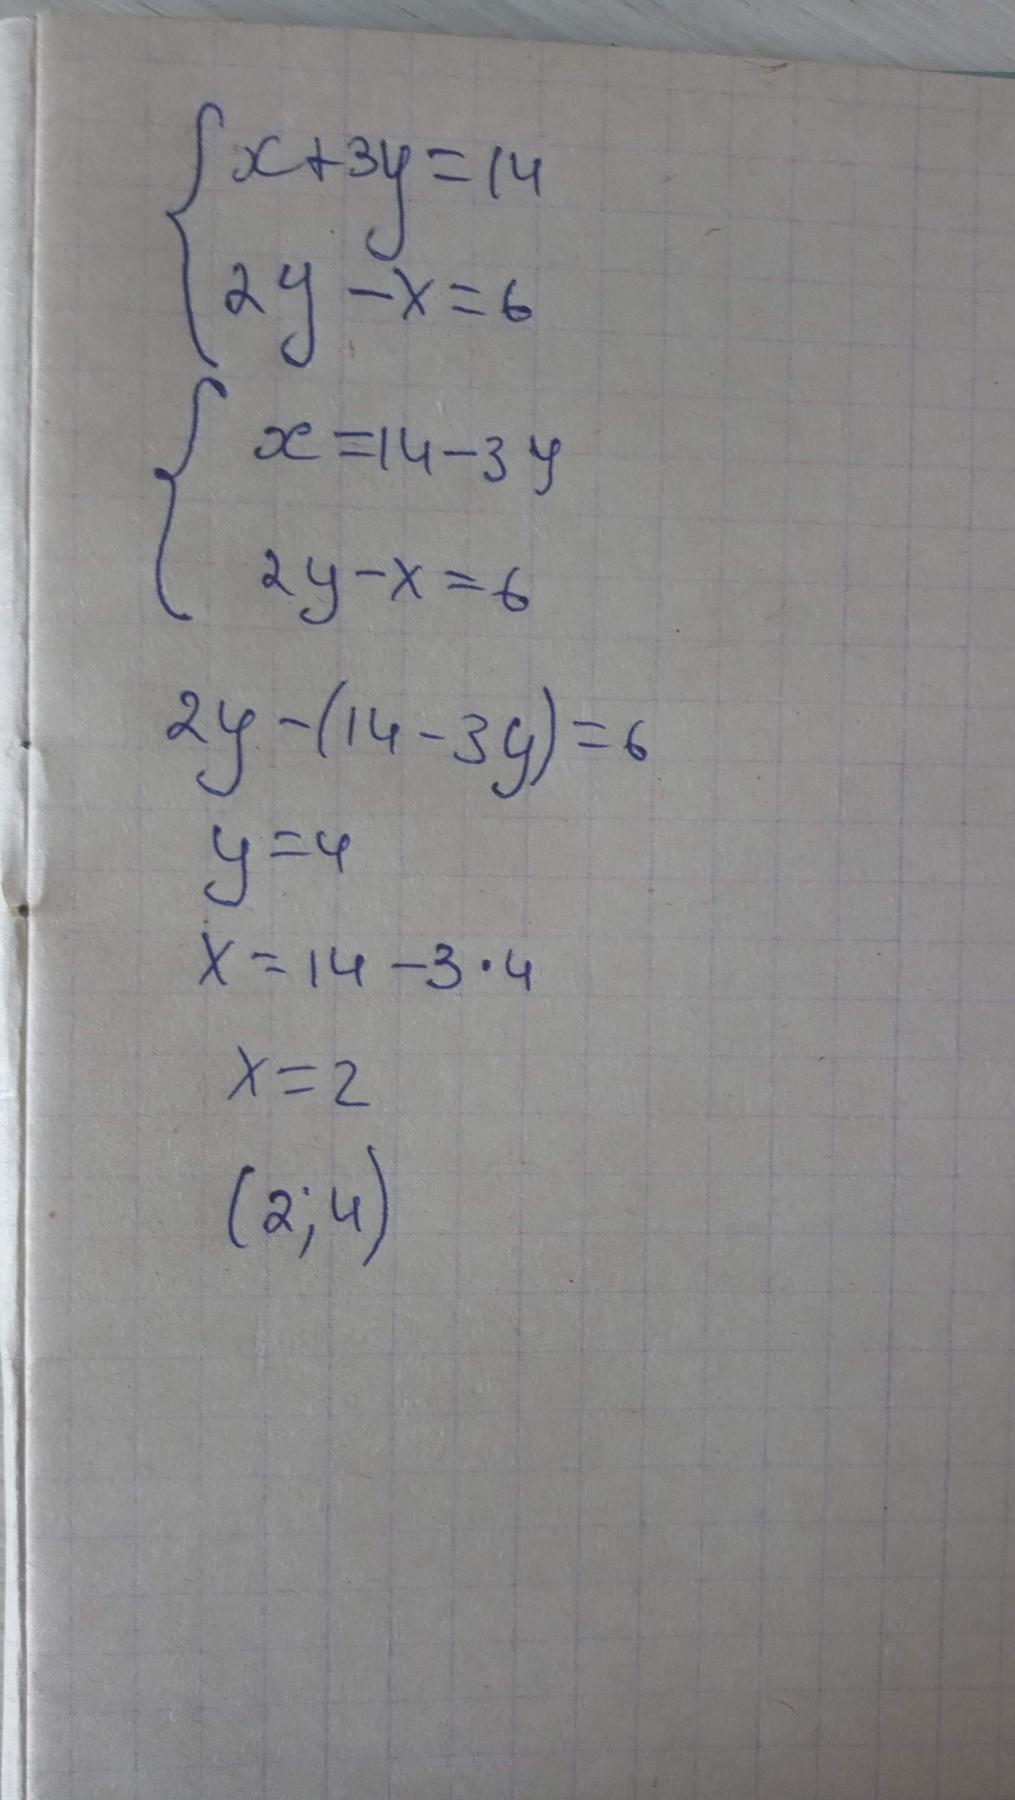 x+3y=14
2y-x=6
x=14-3y
2y-x=6
2y-(14-3y)=6
y=4
x=14-3·4
x=2
(2;4)